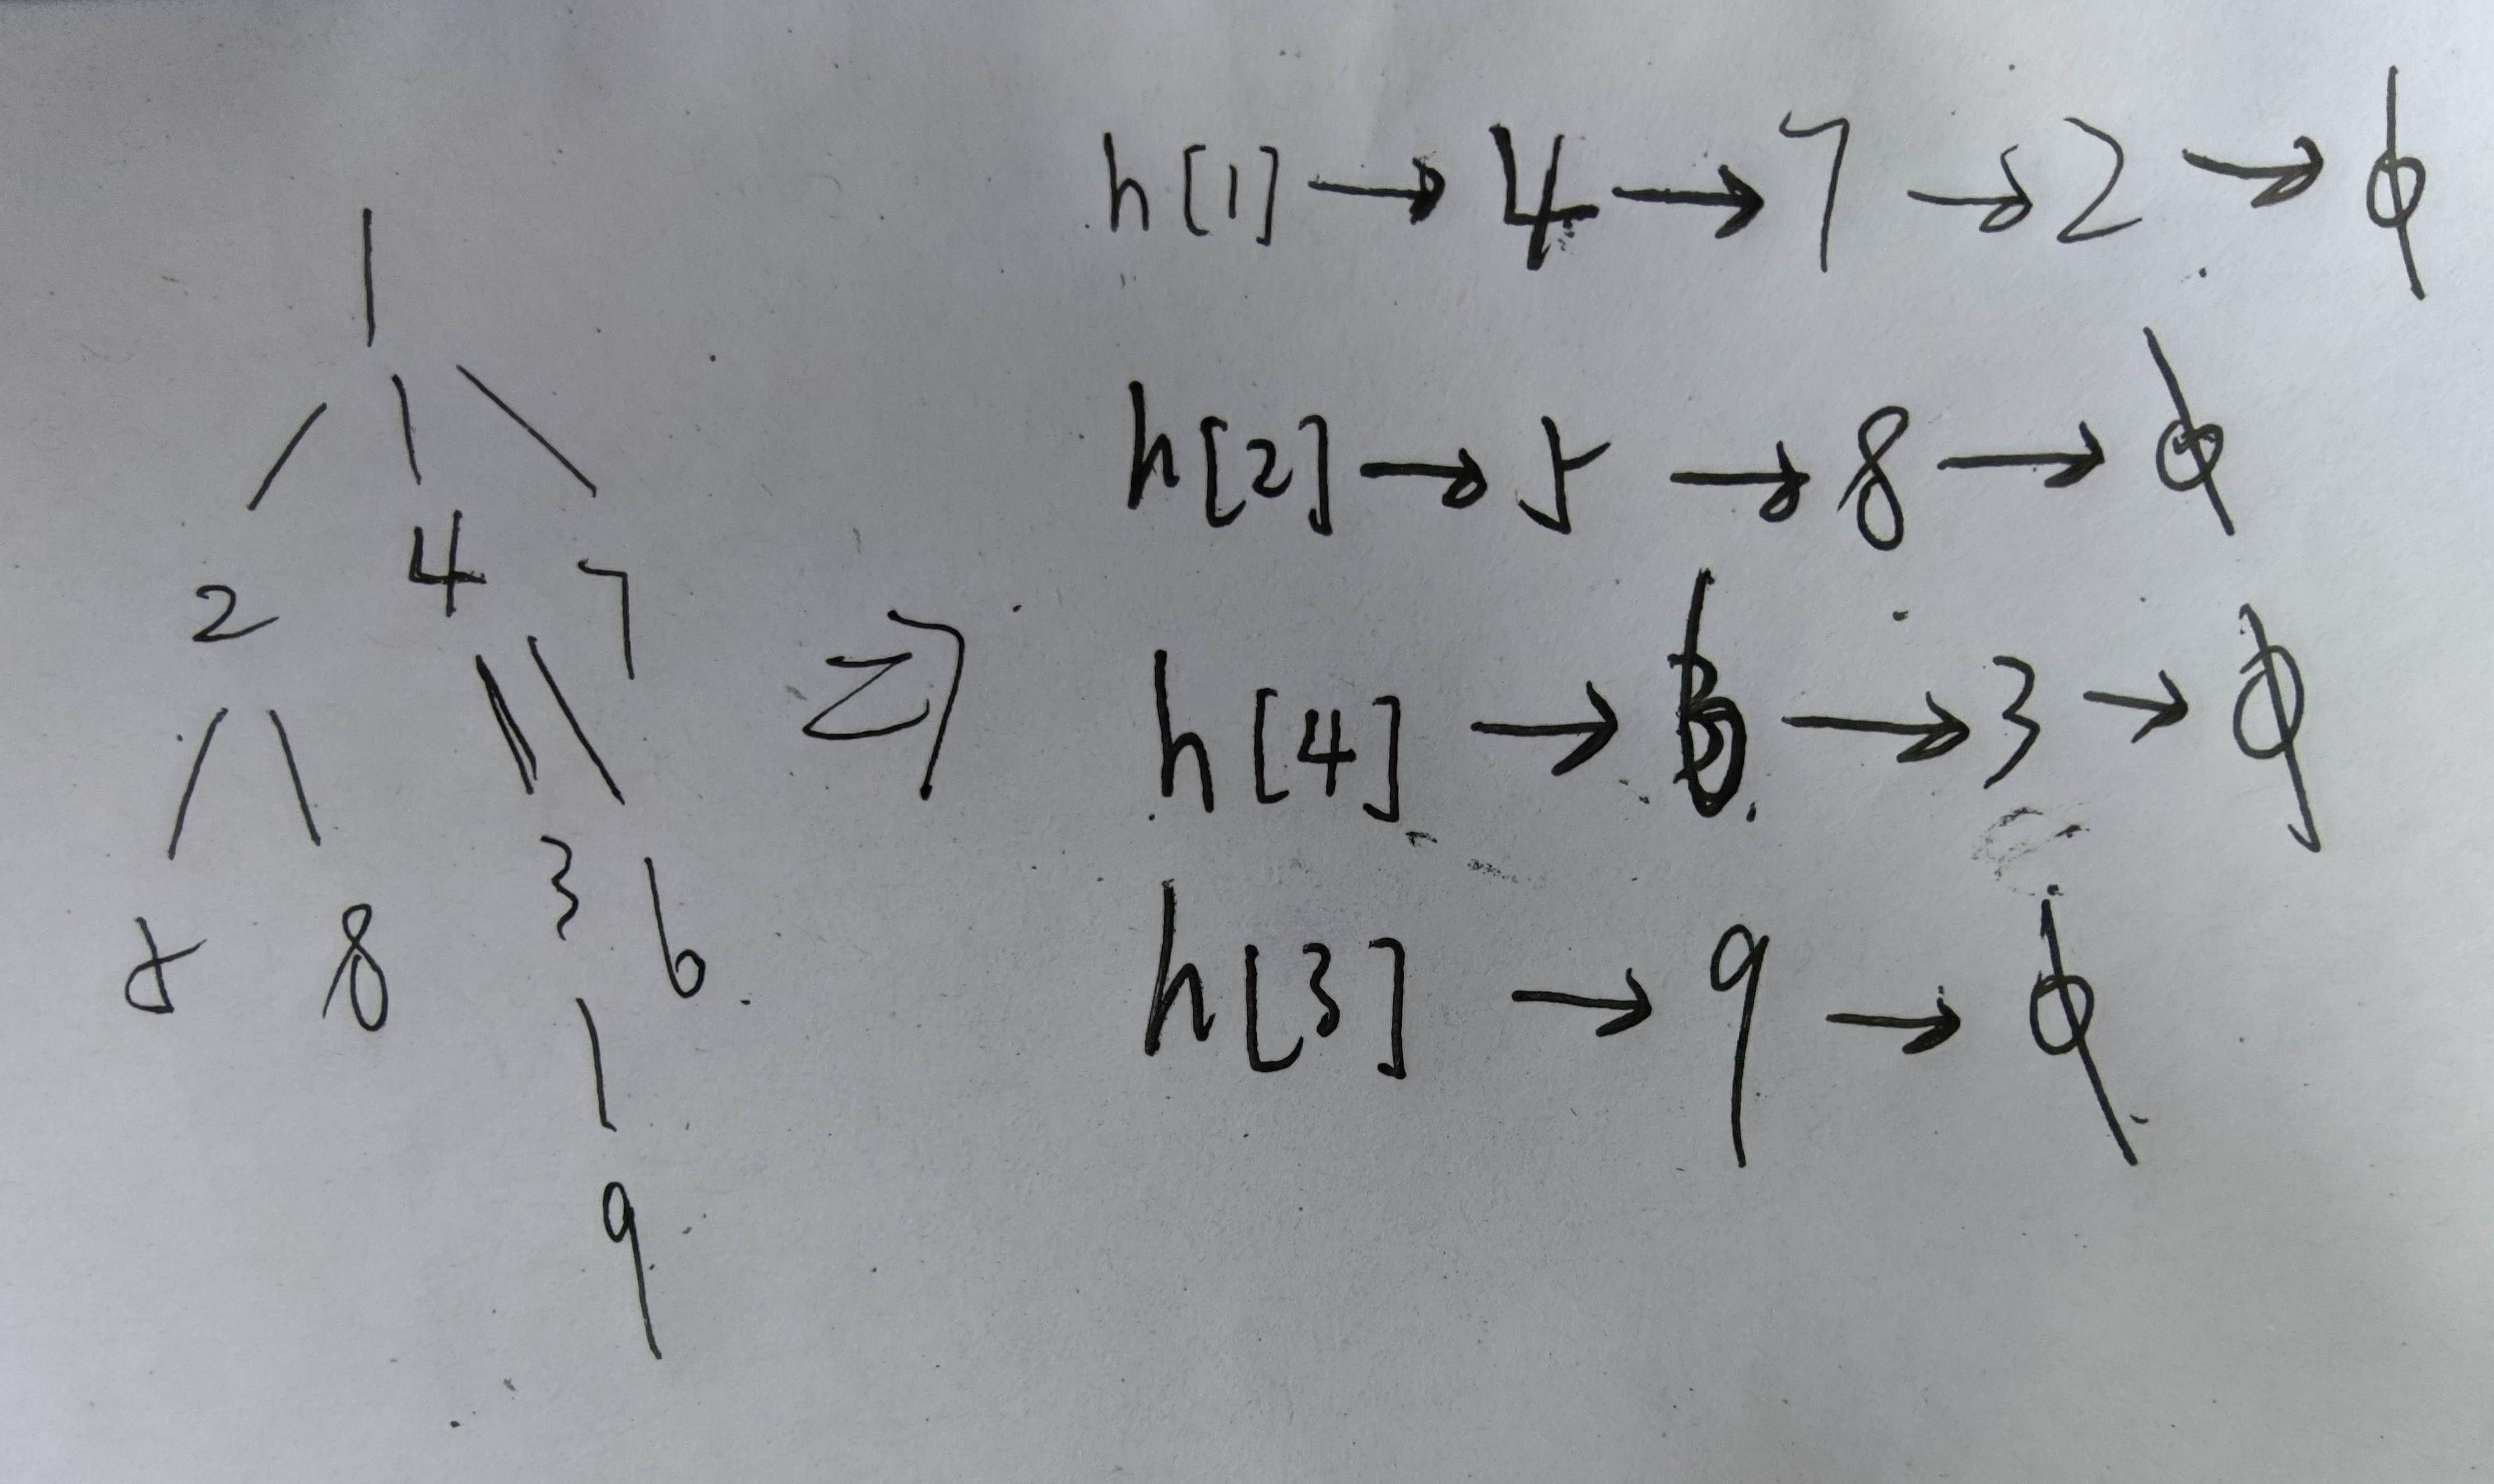 1
2 4 7
5 8 3 6
9
=>
h[1] → 4 → 7 → 2 → ϕ
h[2] → 5 → 8 → ϕ
h[4] → 6 → 3 → ϕ
h[3] → 9 → ϕ